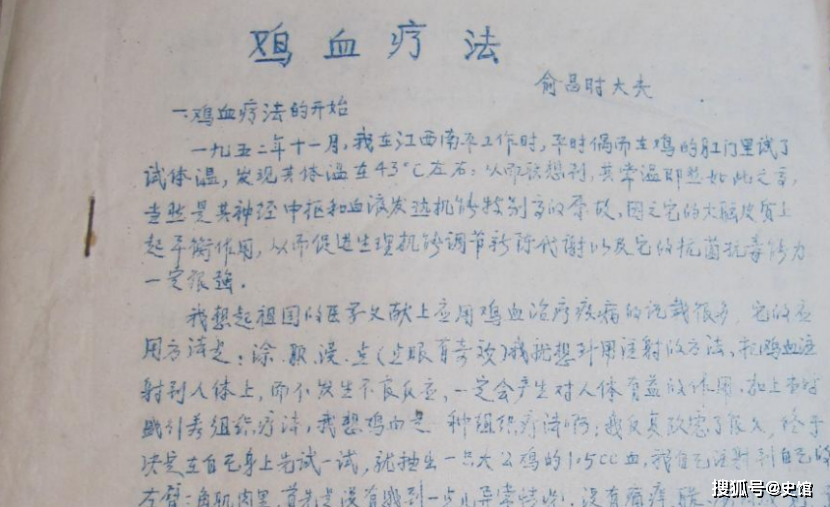 鸡血疗法
俞昌时大夫
一.鸡血疗法的开始
一九五二年十一月,我在江西南平工作时,平时偶而在鸡的肛门里试了
试体温,发现其体温在43°C左右。从而联想到,其常温即然如此之高,
当然是其神经中枢和血液发热机能特别高的原故,因之它的大脑皮质上
起平衡作用,从而促进生理机能调节新陈代谢以及它的抗菌抗毒能力
一定很强.
我想起祖国的医学文献上应用鸡血治疗疾病的记载很多,它的应
用方法是:涂.敷.浸.点(点眼有奇效)我就想到用注射的方法,把鸡血注
射到人体上,而不发生不良反应,一定会产生对人体有益的作用.加上当时
组织疗法,我想鸡血是一种组织疗法啊;我反复考虑了很久,终于
决定在自己身上先试一试,就抽出一只大公鸡的1.5cc血,我自己注射到自己的
左臂三角肌肉里.首先是没有感到一点儿异常特别,没有痛痒
搜狐号@史馆